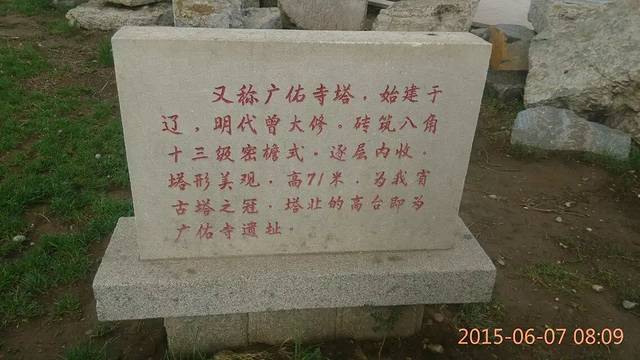 又称广佑寺塔，始建于
辽，明代曾大修。砖筑八角
十三级密檐式．逐层内收．
塔形美观．高71米．为我省
古塔之冠．塔北的高台即为
广佑寺遗址。
2015-06-07 08:09